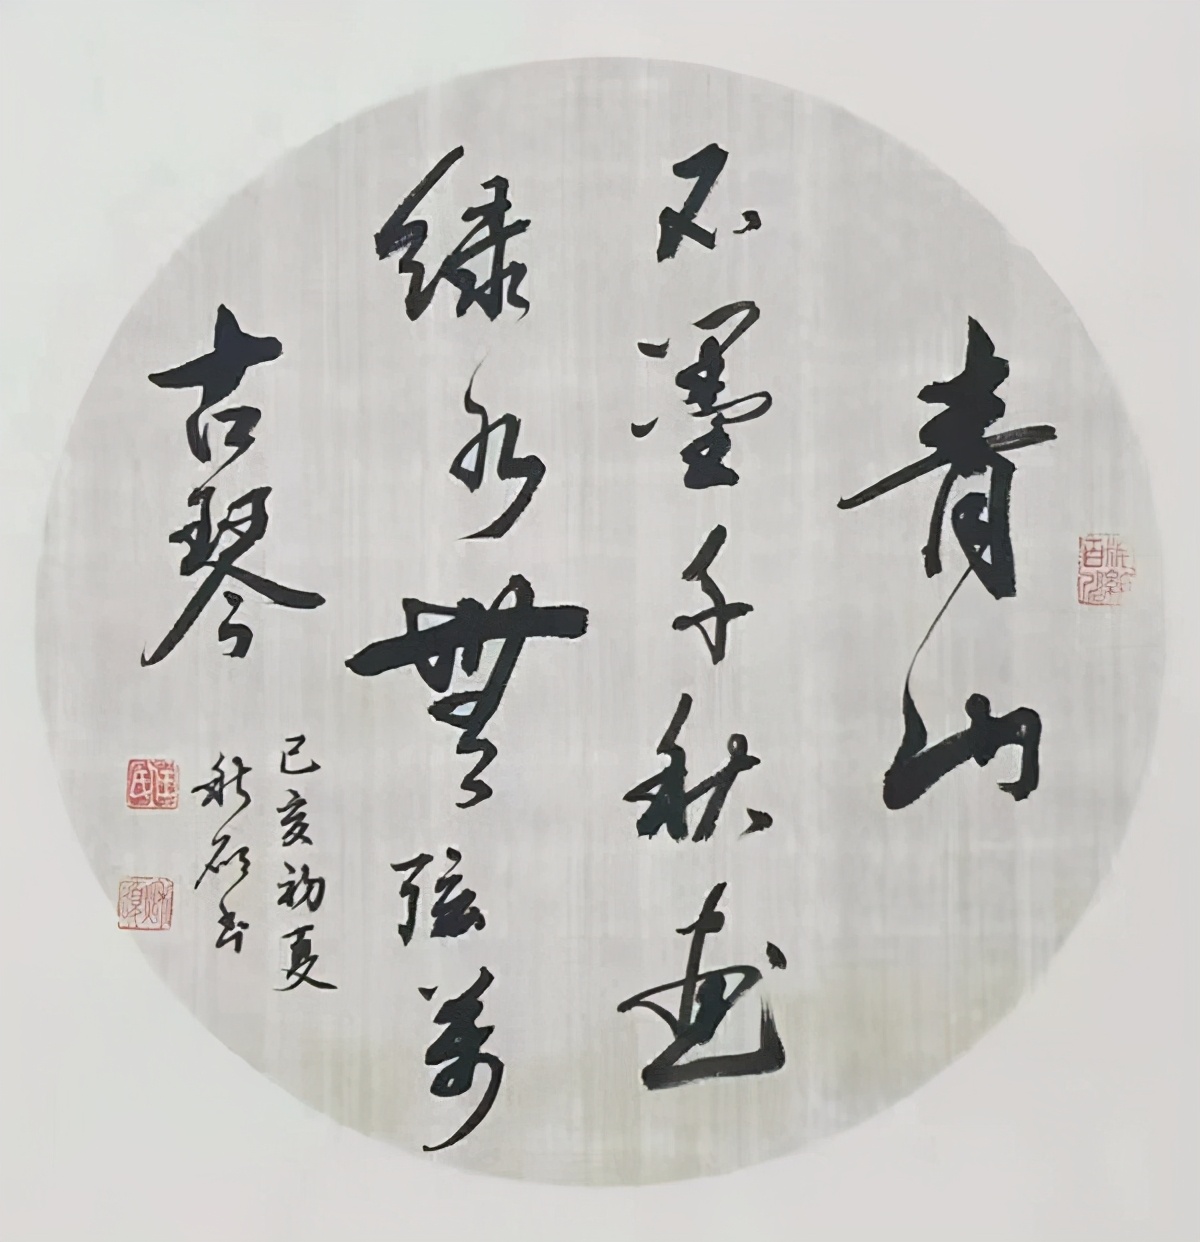 青山
不墨千秋画
绿水無弦萬
古琴
己亥初夏
秋书